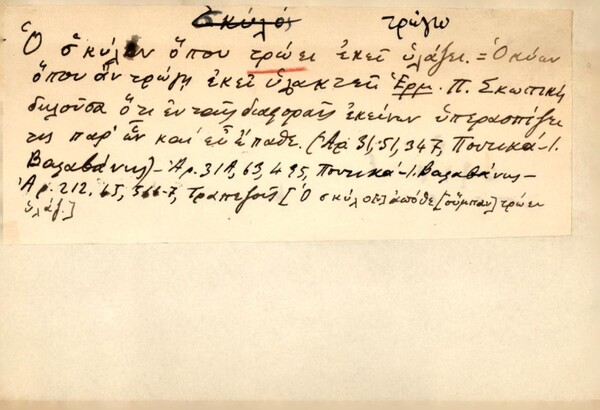 Σκύλος τρώγω
Ὁ σκύλλον ὅπου τρώει ἐκεῖ ὑλάζει. = Ὁ κύων
ὅπου ἂν τρώγῃ ἐκεῖ ὑλακτεῖ Ἑρμ. Π. Σκωπτικὴ
δηλοῦσα ὅτι ἐν ταῖς διαφοραῖς ἐκείνων ὑπερασπίζει
τις παρ' ὧν καὶ εὖ ἔπαθε. (Ἀρ. 31, 51, 347, Ποντικά - Ι.
Βαλαβάνης) - Ἀρ. 31Α, 63, 495, Ποντικά - Ι. Βαλαβάνης -
Ἀρ. 212. 65, 566-7, Τραπεζοῦς [Ὁ σκύλον ἀπόθε [τρώει
ὑλάζ.]